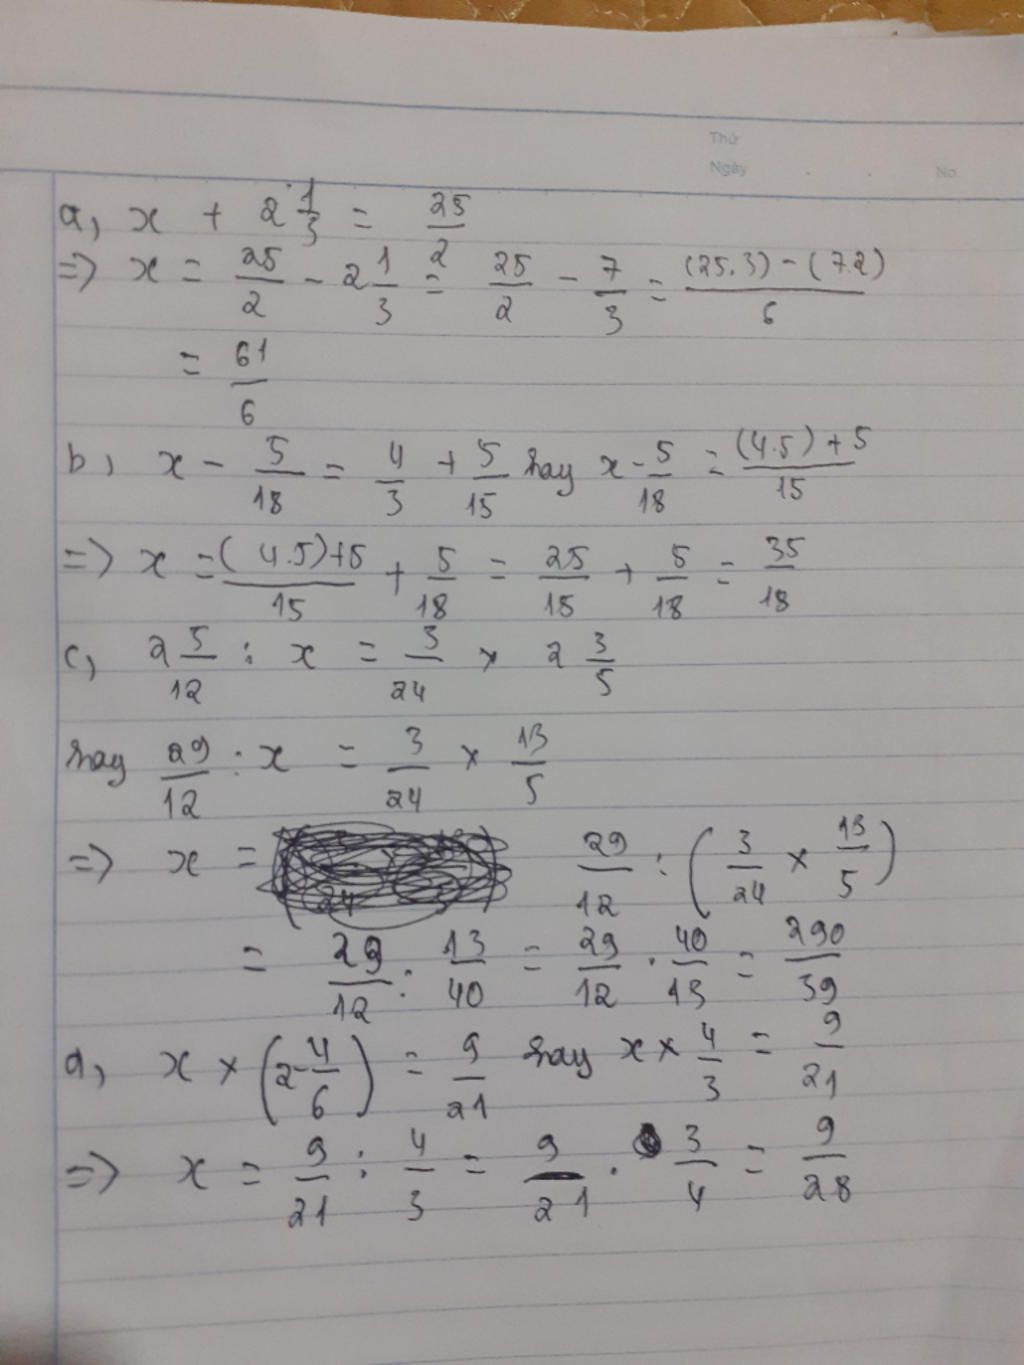 Thứ
Ngày . . No
a, x + 2 1/3 = 25/2
=> x = 25/2 - 2 1/3 = 25/2 - 7/3 = (25.3) - (7.2)/6
= 61/6
b, x - 5/18 = 4/3 + 5/15 hay x - 5/18 = (4.5) + 5/15
=> x = (4.5)+5/15 + 5/18 = 25/15 + 5/18 = 35/18
c, 2 5/12 : x = 3/24 x 2 3/5
hay 29/12 : x = 3/24 x 13/5
=> x = 29/12 : (3/24 x 13/5)
= 29/12 : 13/40 = 29/12 . 40/13 = 290/39
d, x x (2 - 4/6) = 9/21 hay x x 4/3 = 9/21
=> x = 9/21 : 4/3 = 9/21 . 3/4 = 9/28